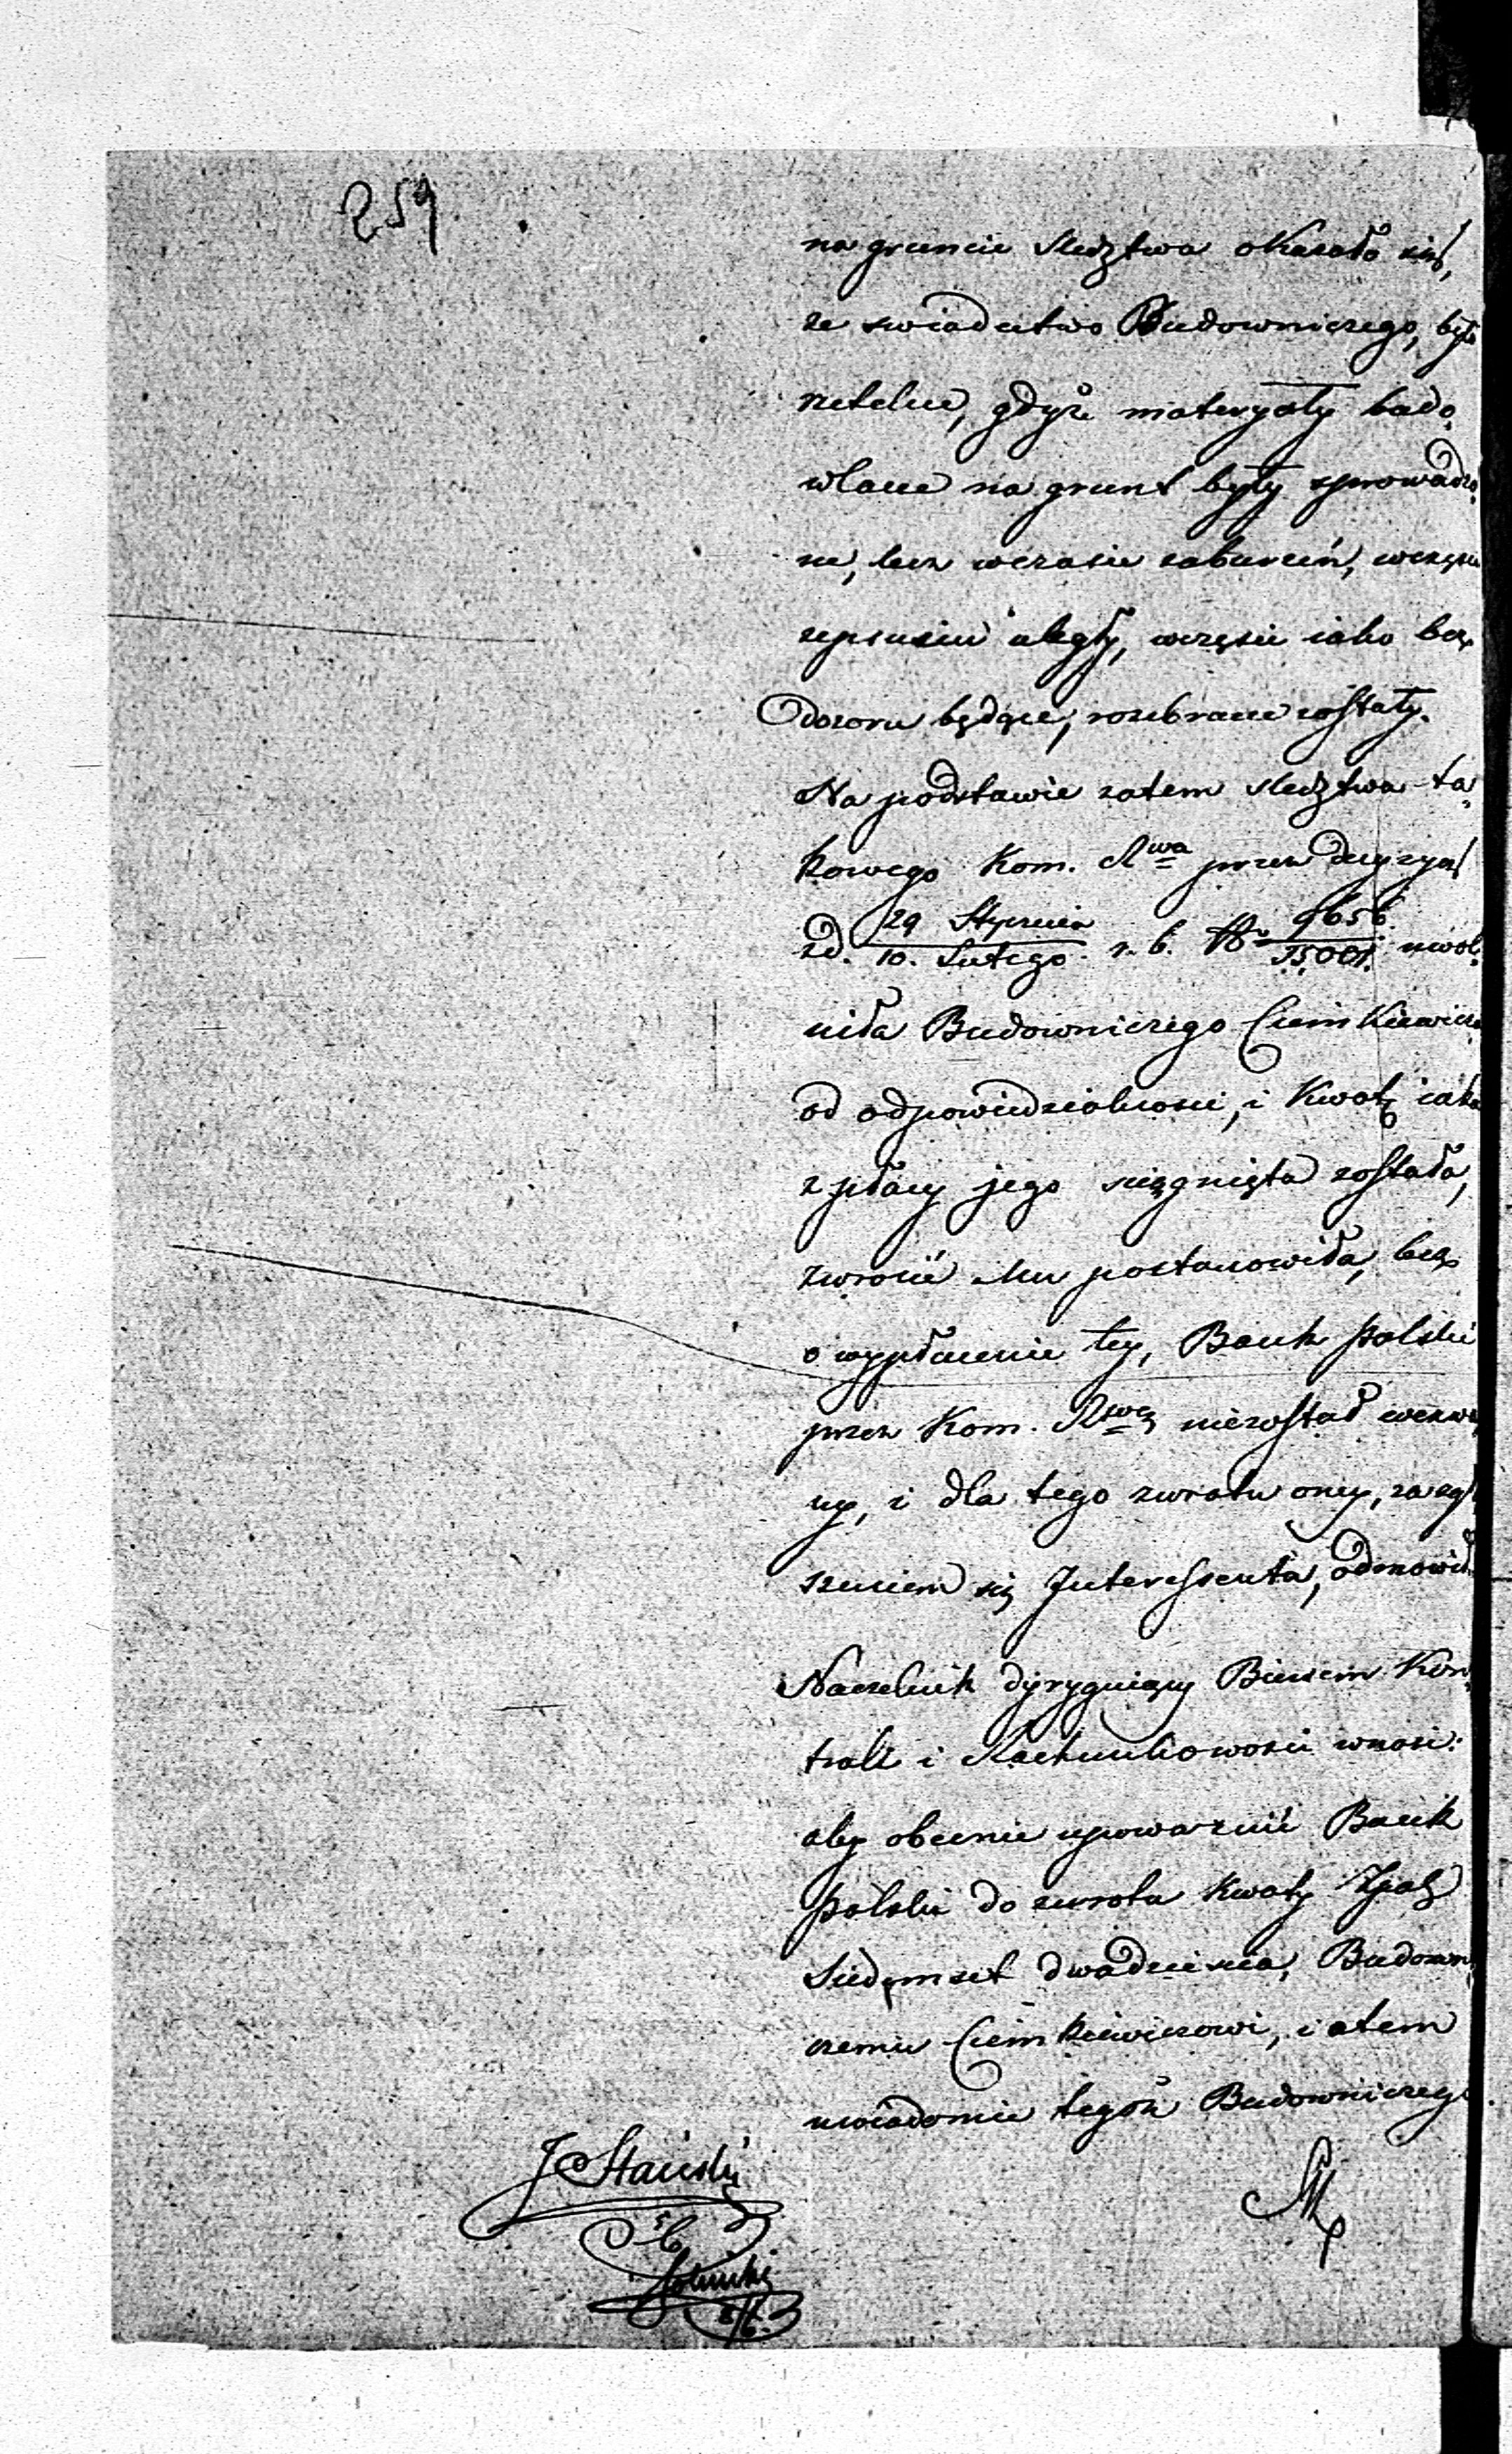 259
na gruncie sledztwa okazało się,
ze swiadectwo Budowniczego, było
rzetelne, gdyż materyały budo
wlane na grunt były sprowadzo
ne, lecz wczasie zaburzeń, wczęści
zepsuciu uległy, wczęsci iako bez
dozoru będące, rozebrane zostały.
Na podstawie zatem sledztwa ta
kowego Kom. Rwa przez decyzyą
zd. 29 Stycznia / 10. Lutego r. b. No 9656 / uwol
niła Budowniczego Ciemkiewicza
od odpowiedzialnosci, i Kwotę iaka
z płacy jego sciągnięta została,
zwrócić Mu postanowiła, lecz
o wypłacenie tey, Bank polski
przez Kom. Rwą niezostał wezwa
ny, i dla tego zwrotu oney, za zgł
szeniem się Interessenta, odmowił
Naczelnik dyryguiący Biurem Kon
troli i Rachunkowosci wnosi:
aby obecnie upoważnić Bank
polski do zwrotu Kwoty Złpol
Siedmset dwadziescia, Budowni
czemu Ciemkiewiczowi, i otem
uwiadomić tegoż Budowniczego